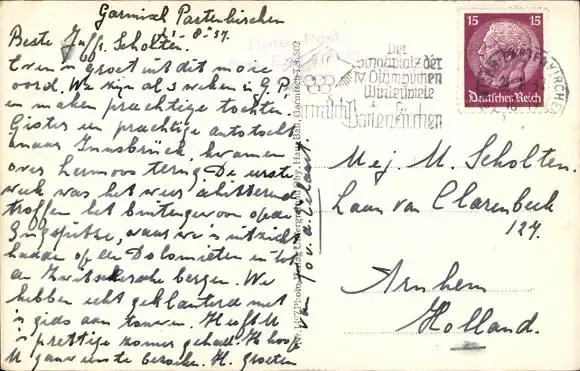 Garmisch Partenkirchen
21-8-'37.
Beste Juffr. Scholten.
Even n groet uit dit mooie
oord. We zijn al 3 weken in G.P.
en maken prachtige tochten.
Gister een prachtige autotocht
naar Innsbrück, kwamen
over hermoos terug. De eerste
week was het weer schitterend
troffen het buitengewoon op de
Zugspitze, waar we 'n uitzicht
hadden op de Dolomieten en tot
de Zwitsersche bergen. We
hebben echt geklauterd met
'n gids aan touwen. Heeft U
'n prettige zomer gehad. Ik hoop
U gauw eens te bezoeken. H. groeten
van Jov. a.
Der
Schauplatz der
IV Olympischen
Winterspiele
Garmisch Partenkirchen
15 15
Deutsches Reich
Mej. M. Scholten.
Laan van Clarenbeek
127.
Arnhem
Holland.